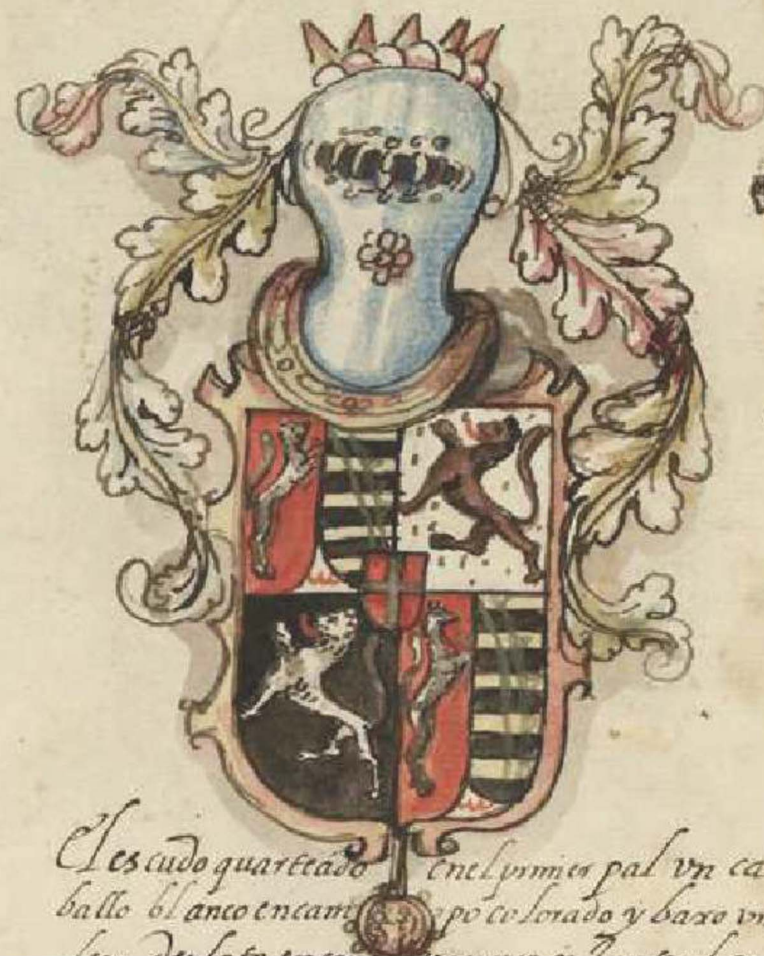 El escudo quarteado enel primer pal vn ca
ballo blanco encam po colorado y baxo vn